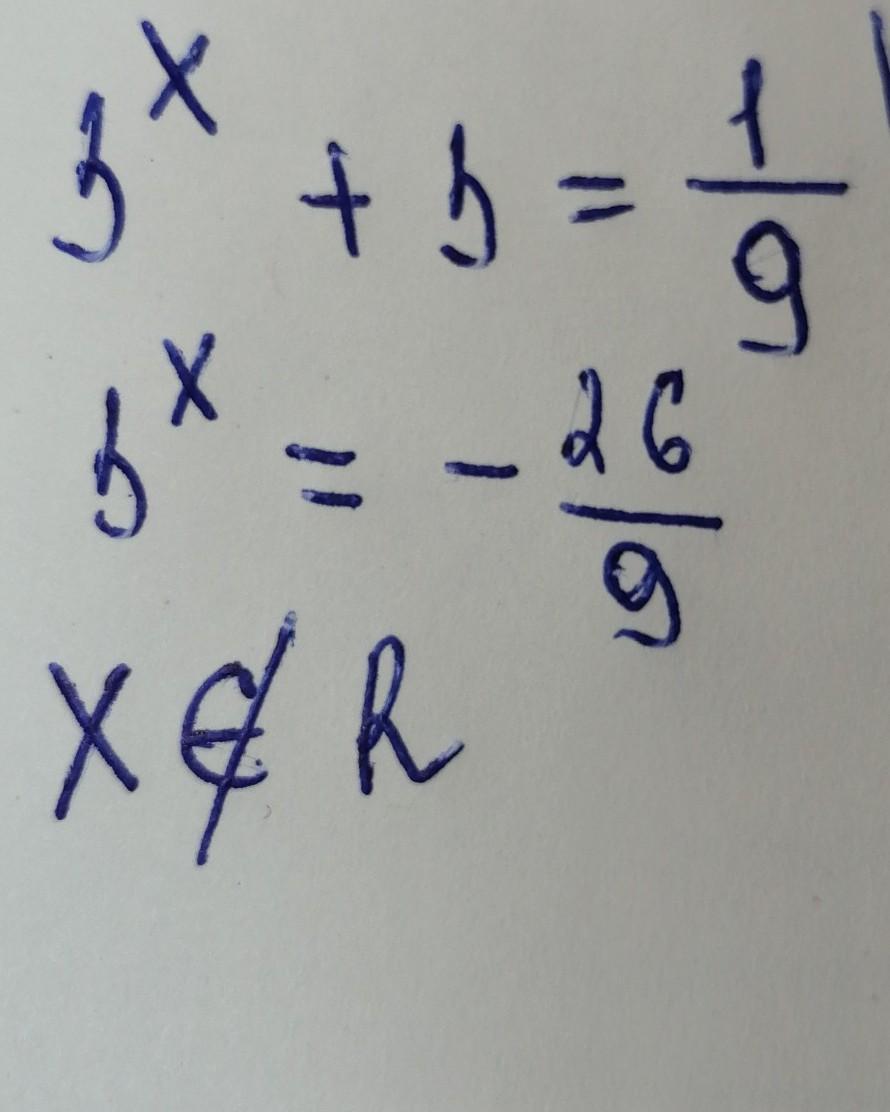 3^x + 3 = 1/9
3^x = - 26/9
x ∉ R